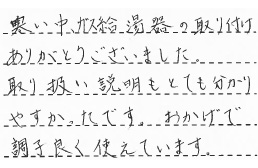 寒い中、ガス給湯器の取り付け
ありがとうございました。
取り扱い説明もとても分かり
やすかったです。おかげで
調子良く使えています。